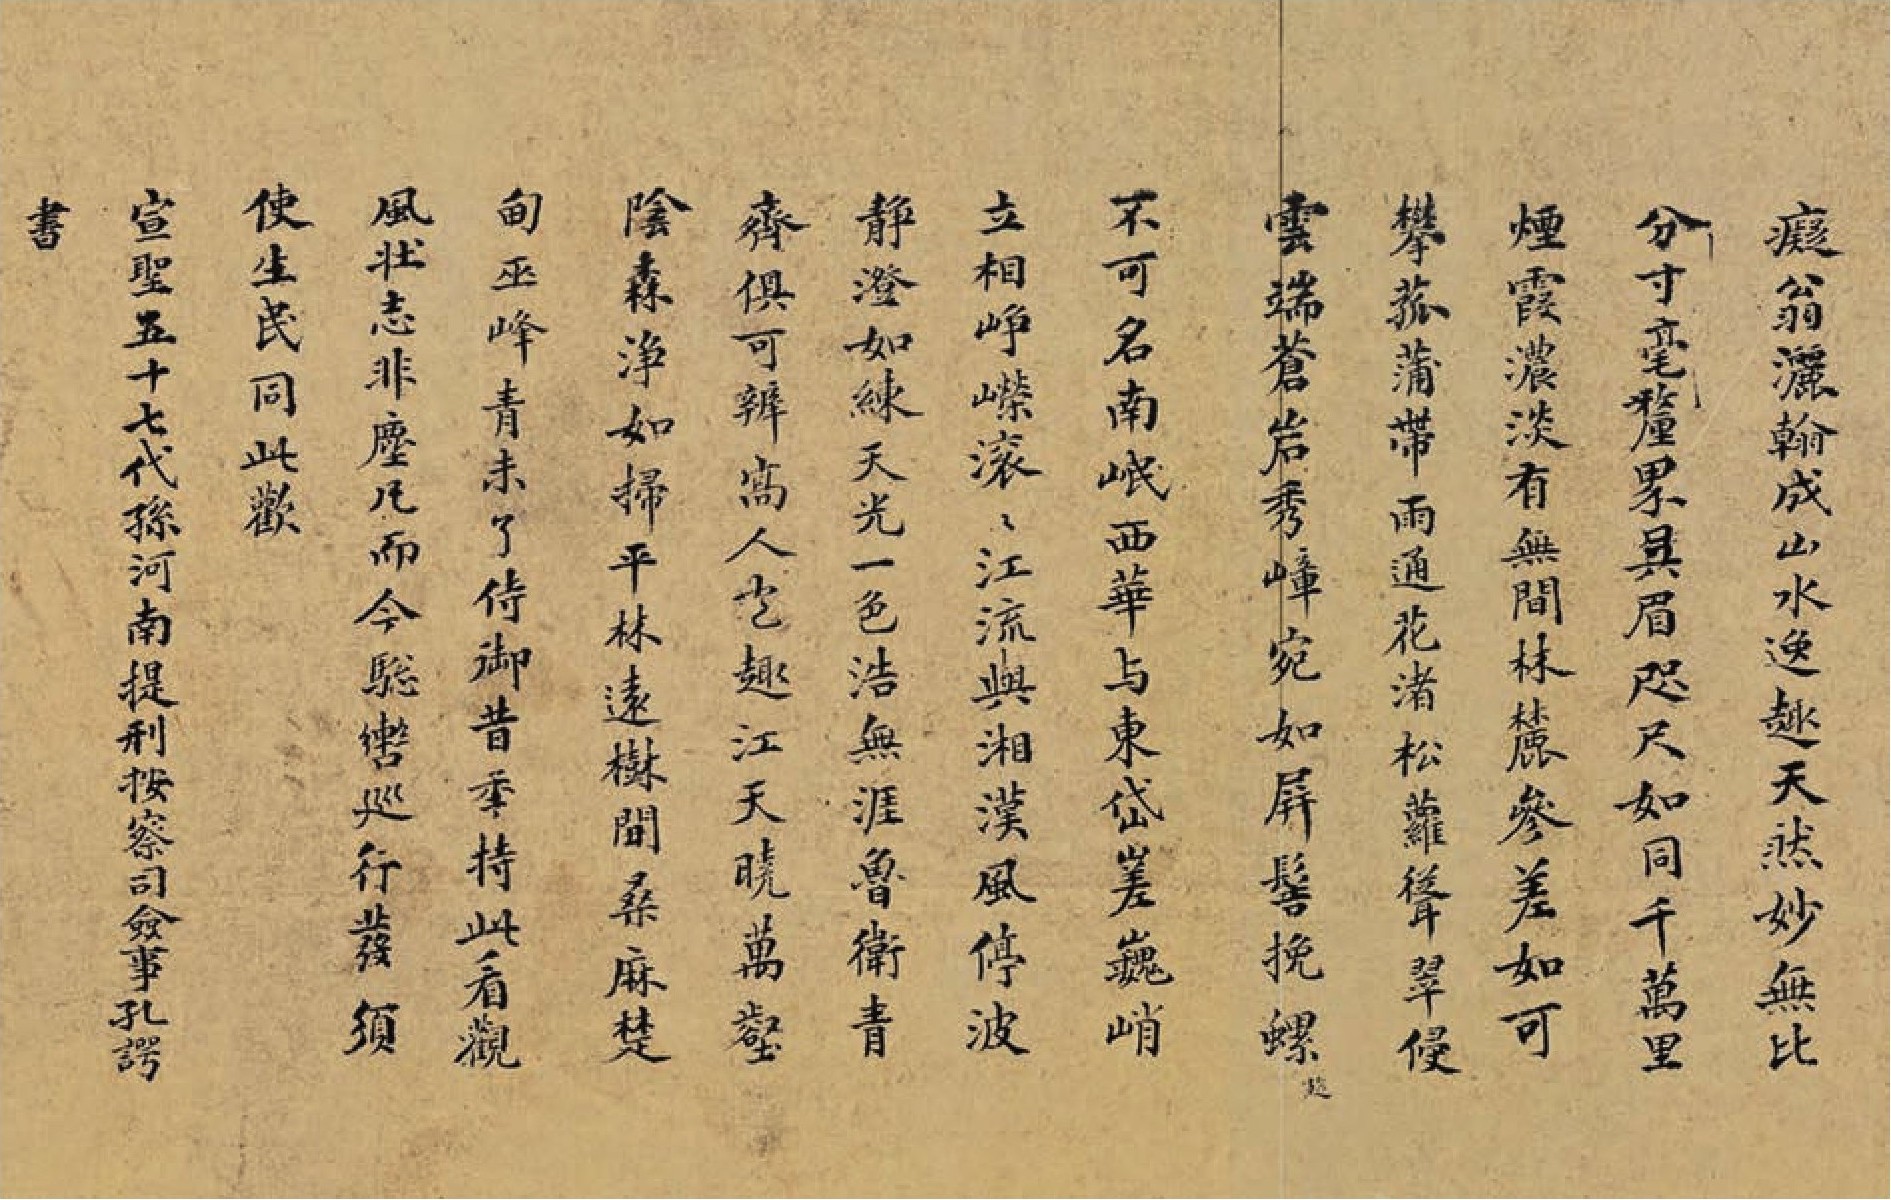 癡翁灑翰成山水逸趣天然妙無比
分寸毫釐累具眉咫尺如同千萬里
煙霞濃淡有無間林麓參差如可
攀菰蒲帶雨通花渚松蘿聳翠侵
雲端蒼岩秀嶂宛如屏髻挽螺
不可名南岷西華与東岱嵳巍峭
立相崢嶸滚〻江流與湘漢風停波
靜澄如練天光一色浩無涯魯衛青
齊俱可辨寫人意趣江天曉萬壑
陰森淨如掃平林遠樹間桑麻楚
甸巫峰青未了侍御昔年持此看觀
風壯志非塵凡而今驄轡巡行發須
使生民同此歡
宣聖五十七代孫河南提刑按察司僉事孔諤
書